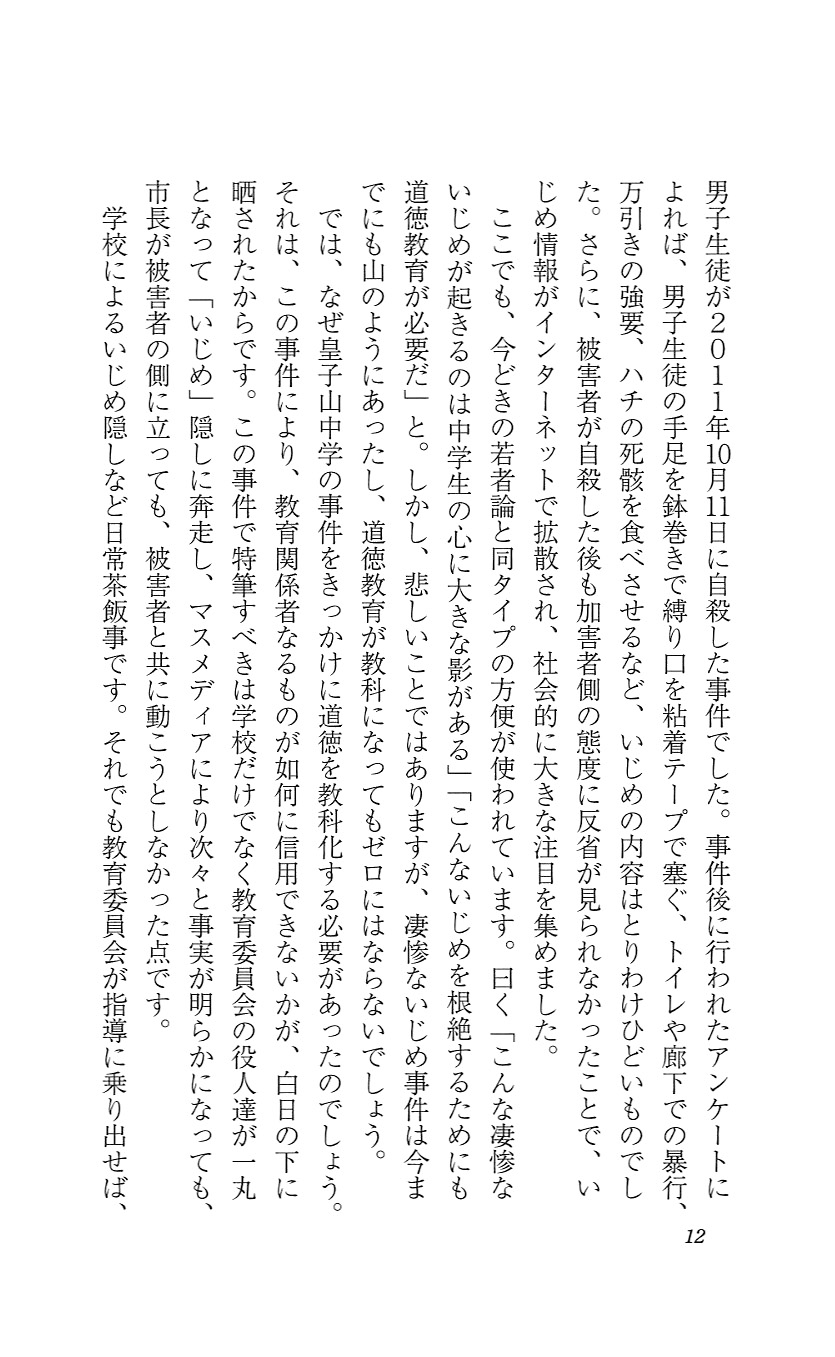 男子生徒が2011年10月11日に自殺した事件でした。事件後に行われたアンケートに
よれば、男子生徒の手足を鉢巻きで縛り口を粘着テープで塞ぐ、トイレや廊下での暴行、
万引きの強要、ハチの死骸を食べさせるなど、いじめの内容はとりわけひどいものでし
た。さらに、被害者が自殺した後も加害者側の態度に反省が見られなかったことで、い
じめ情報がインターネットで拡散され、社会的に大きな注目を集めました。
　ここでも、今どきの若者論と同タイプの方便が使われています。曰く「こんな凄惨な
いじめが起きるのは中学生の心に大きな影がある」「こんないじめを根絶するためにも
道徳教育が必要だ」と。しかし、悲しいことではありますが、凄惨ないじめ事件は今ま
でにも山のようにあったし、道徳教育が教科になってもゼロにはならないでしょう。
　では、なぜ皇子山中学の事件をきっかけに道徳を教科化する必要があったのでしょう。
それは、この事件により、教育関係者なるものが如何に信用できないかが、白日の下に
晒されたからです。この事件で特筆すべきは学校だけでなく教育委員会の役人達が一丸
となって「いじめ」隠しに奔走し、マスメディアにより次々と事実が明らかになっても、
市長が被害者の側に立っても、被害者と共に動こうとしなかった点です。
　学校によるいじめ隠しなど日常茶飯事です。それでも教育委員会が指導に乗り出せば、
12